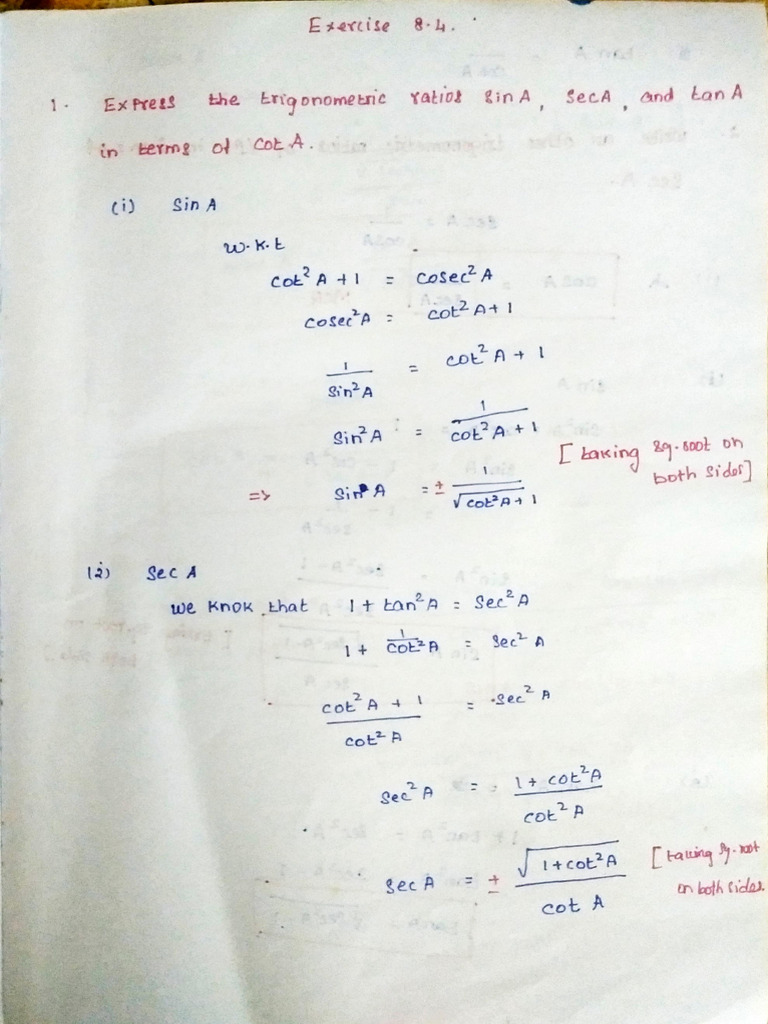 Exercise 8.4.
1. Express the trigonometric ratios sin A, sec A, and tan A
in terms of cot A.
(i) Sin A
W.K.t
cot² A + 1 = cosec² A
cosec² A = cot² A + 1
1/sin² A = cot² A + 1
sin² A = 1/(cot² A + 1)
=> sin A = ± 1/√(cot² A + 1) [taking sq.root on
both sides]
(2) Sec A
we knok that 1 + tan² A = Sec² A
1 + 1/cot² A = Sec² A
(cot² A + 1)/cot² A = Sec² A
Sec² A = (1 + cot² A)/cot² A
sec A = ± √(1 + cot² A)/cot A [taking sq.root
on both sides